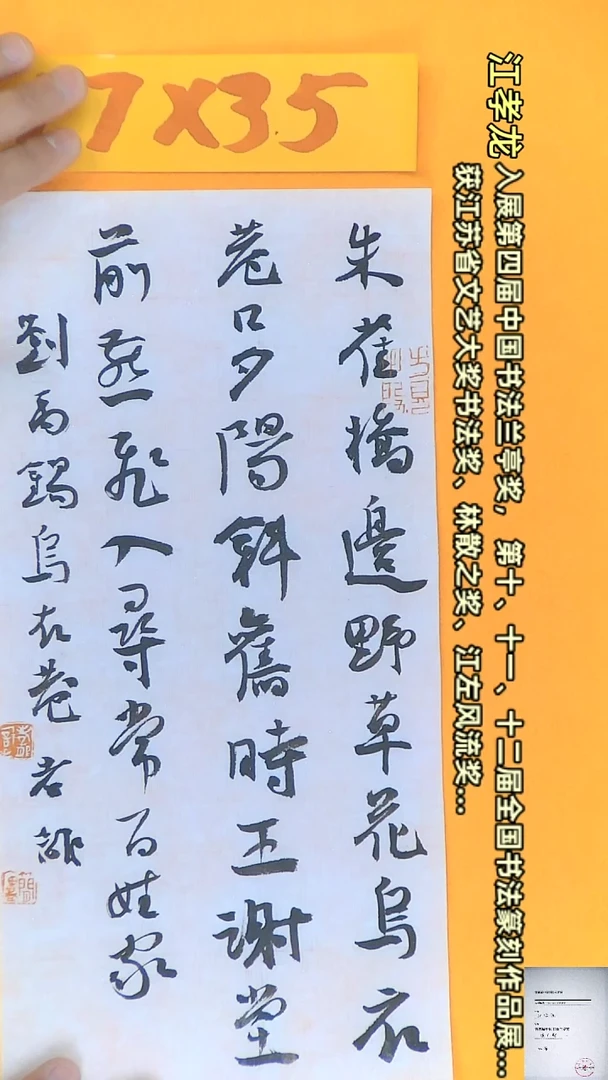 7X35
朱雀橋邊野草花烏衣
巷口夕陽斜舊時王謝堂
前燕飛入尋常百姓家
劉禹錫烏衣巷
江孝龙 入展第四届中国书法兰亭奖，第十、十一、十二届全国书法篆刻作品展...
获江苏省文艺大奖书法奖、林散之奖、江左风流奖...